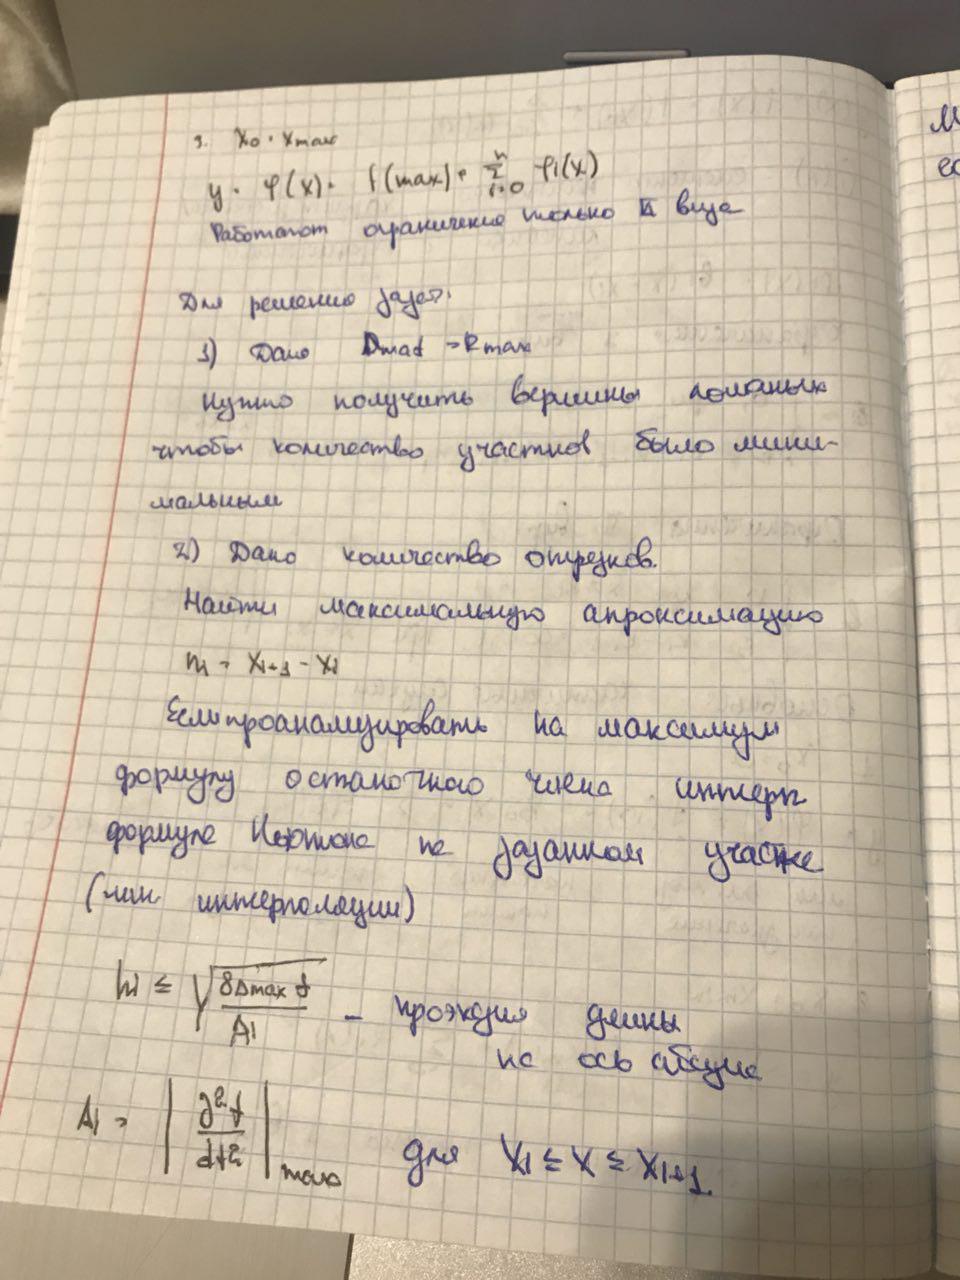 3. x₀ = xmax
y = φ(x) = f(max) + Σ φi(x)
n
i=0
Работают ограничение только II вида
Для решению задач:
1) Дано Dmaf = Rmax
Нужно получить вершины ломаных
чтобы количество участков было мини-
мальным
2) Дано количество отрезков.
Найти максимальную апроксимацию
= xi+1 - xi
Если проанализировать на максимум
формулу остаточного члена интерп
формуле Ньютона на заданном участке
(лин. интерполяции)
hi ≤ √(8Δmax f / Ai) – проэкция длины
на ось абсцис
Ai = |d²f / dt²|max для Xi ≤ X ≤ Xi+1.
М
ес